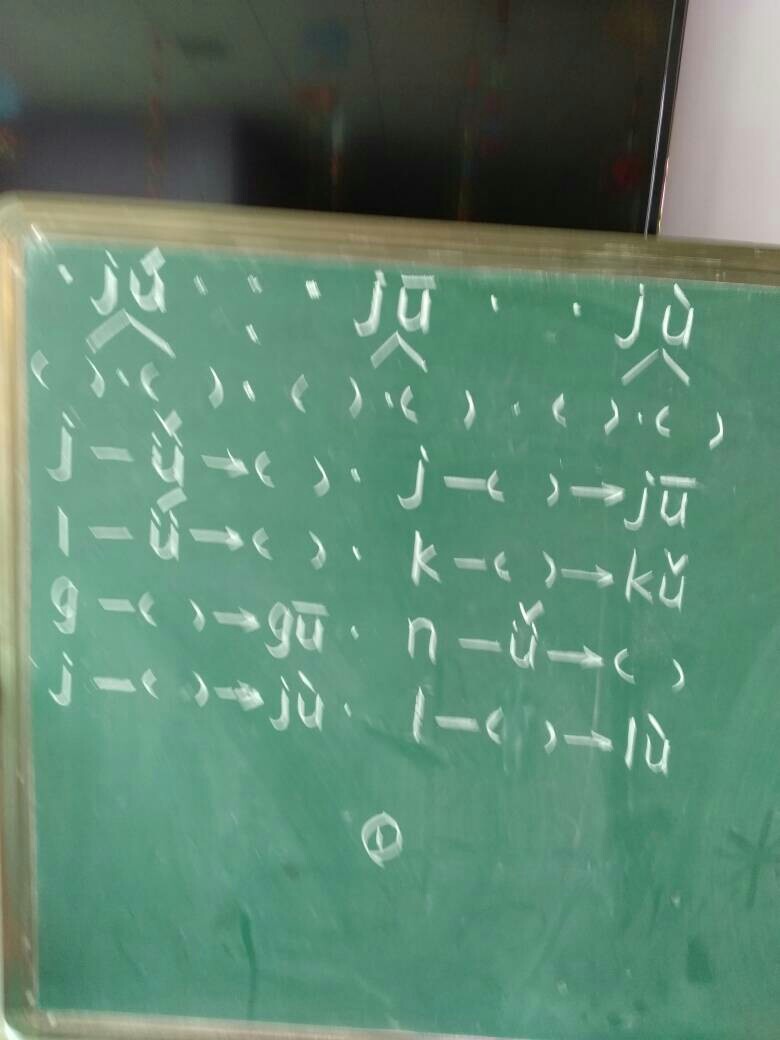 jú jū jù
( ) ( ) ( ) ( ) ( ) ( )
j — ǘ → ( ) j — ( ) → jū
l — ǘ → ( ) k — ( ) → kǔ
g — ( ) → gū n — ǚ → ( )
j — ( ) → jù l — ( ) → lù
①